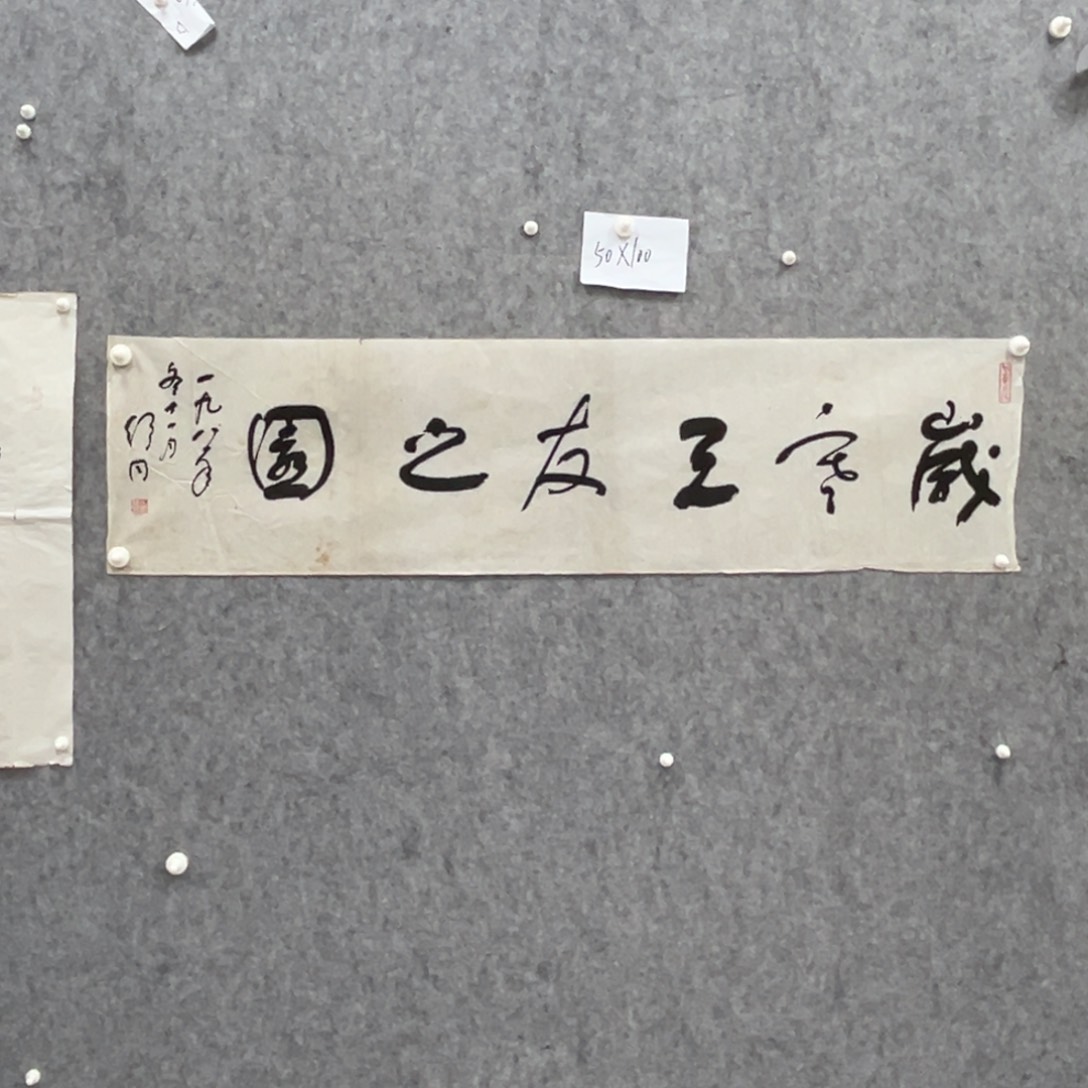 50X100
歲寒三友之園
一九八八年
冬十一月
舒同